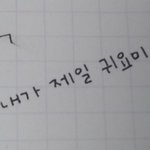 내가 제일 귀요미